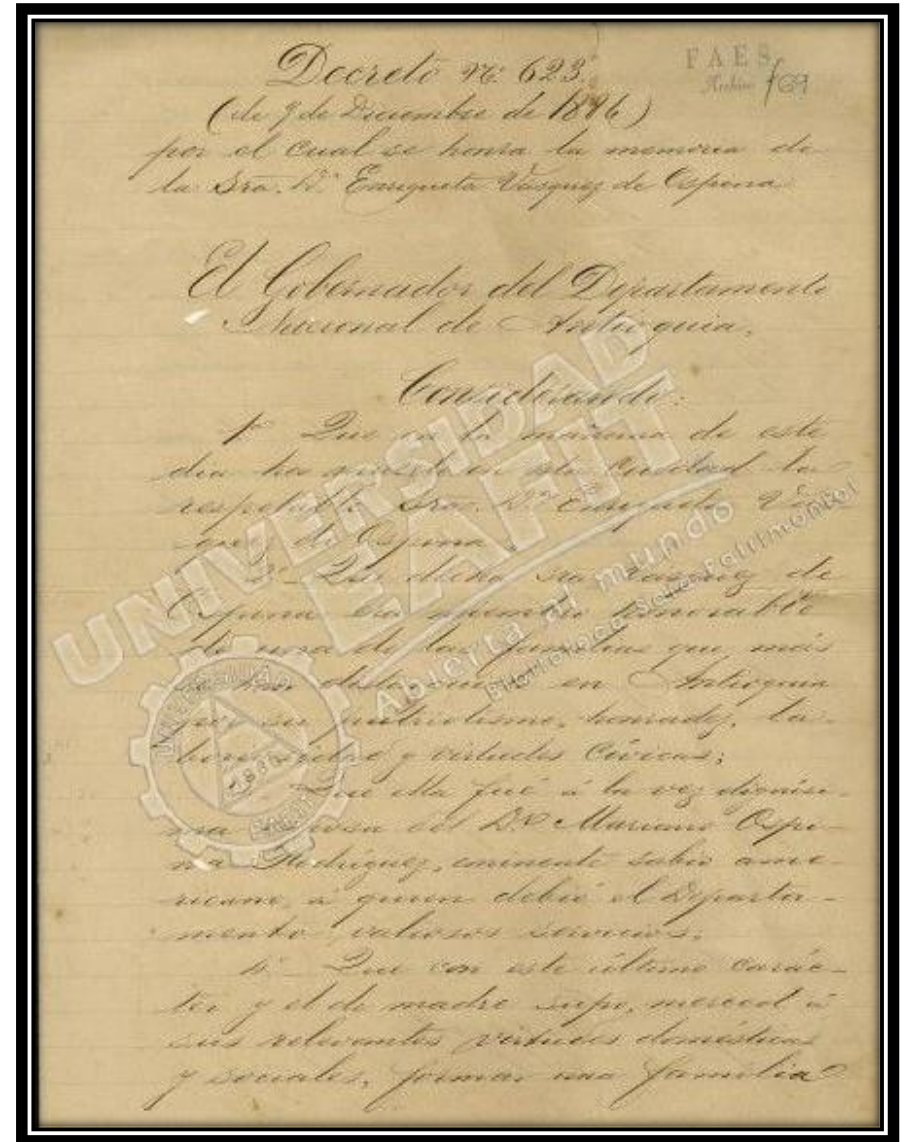 Decreto No. 623.
FAES
Archivo /69
(de 9 de Diciembre de 1886)
por el cual se honra la memoria de
la Sra. Da. Enriqueta Vásquez de Ospina
El Gobernador del Departamento
Nacional de Antioquia,
Considerando:
1o. Que en la mañana de este
día ha muerto en esta ciudad la
respetable Sra. Da. Enriqueta Vás-
quez de Ospina;
2o. Que dicha Sra. Vásquez de
Ospina era miembro honorable
de una de las familias que más
se han distinguido en Antioquia
por su patriotismo, honradez, la-
boriosidad y virtudes cívicas;
Que ella fué á la vez dignísi-
ma esposa del Dr. Mariano Ospi-
na Rodríguez, eminente sabio ame-
ricano, á quien debió el Departa-
mento valiosos servicios;
4o. Que con este último carác-
ter y el de madre supo, merced á
sus relevantes virtudes domésticas
y sociales, formar una familia
UNIVERSIDAD
EAFIT
Abierta al mundo
Biblioteca Sala Patrimonial
UNIVERSIDAD
1960
EAFIT